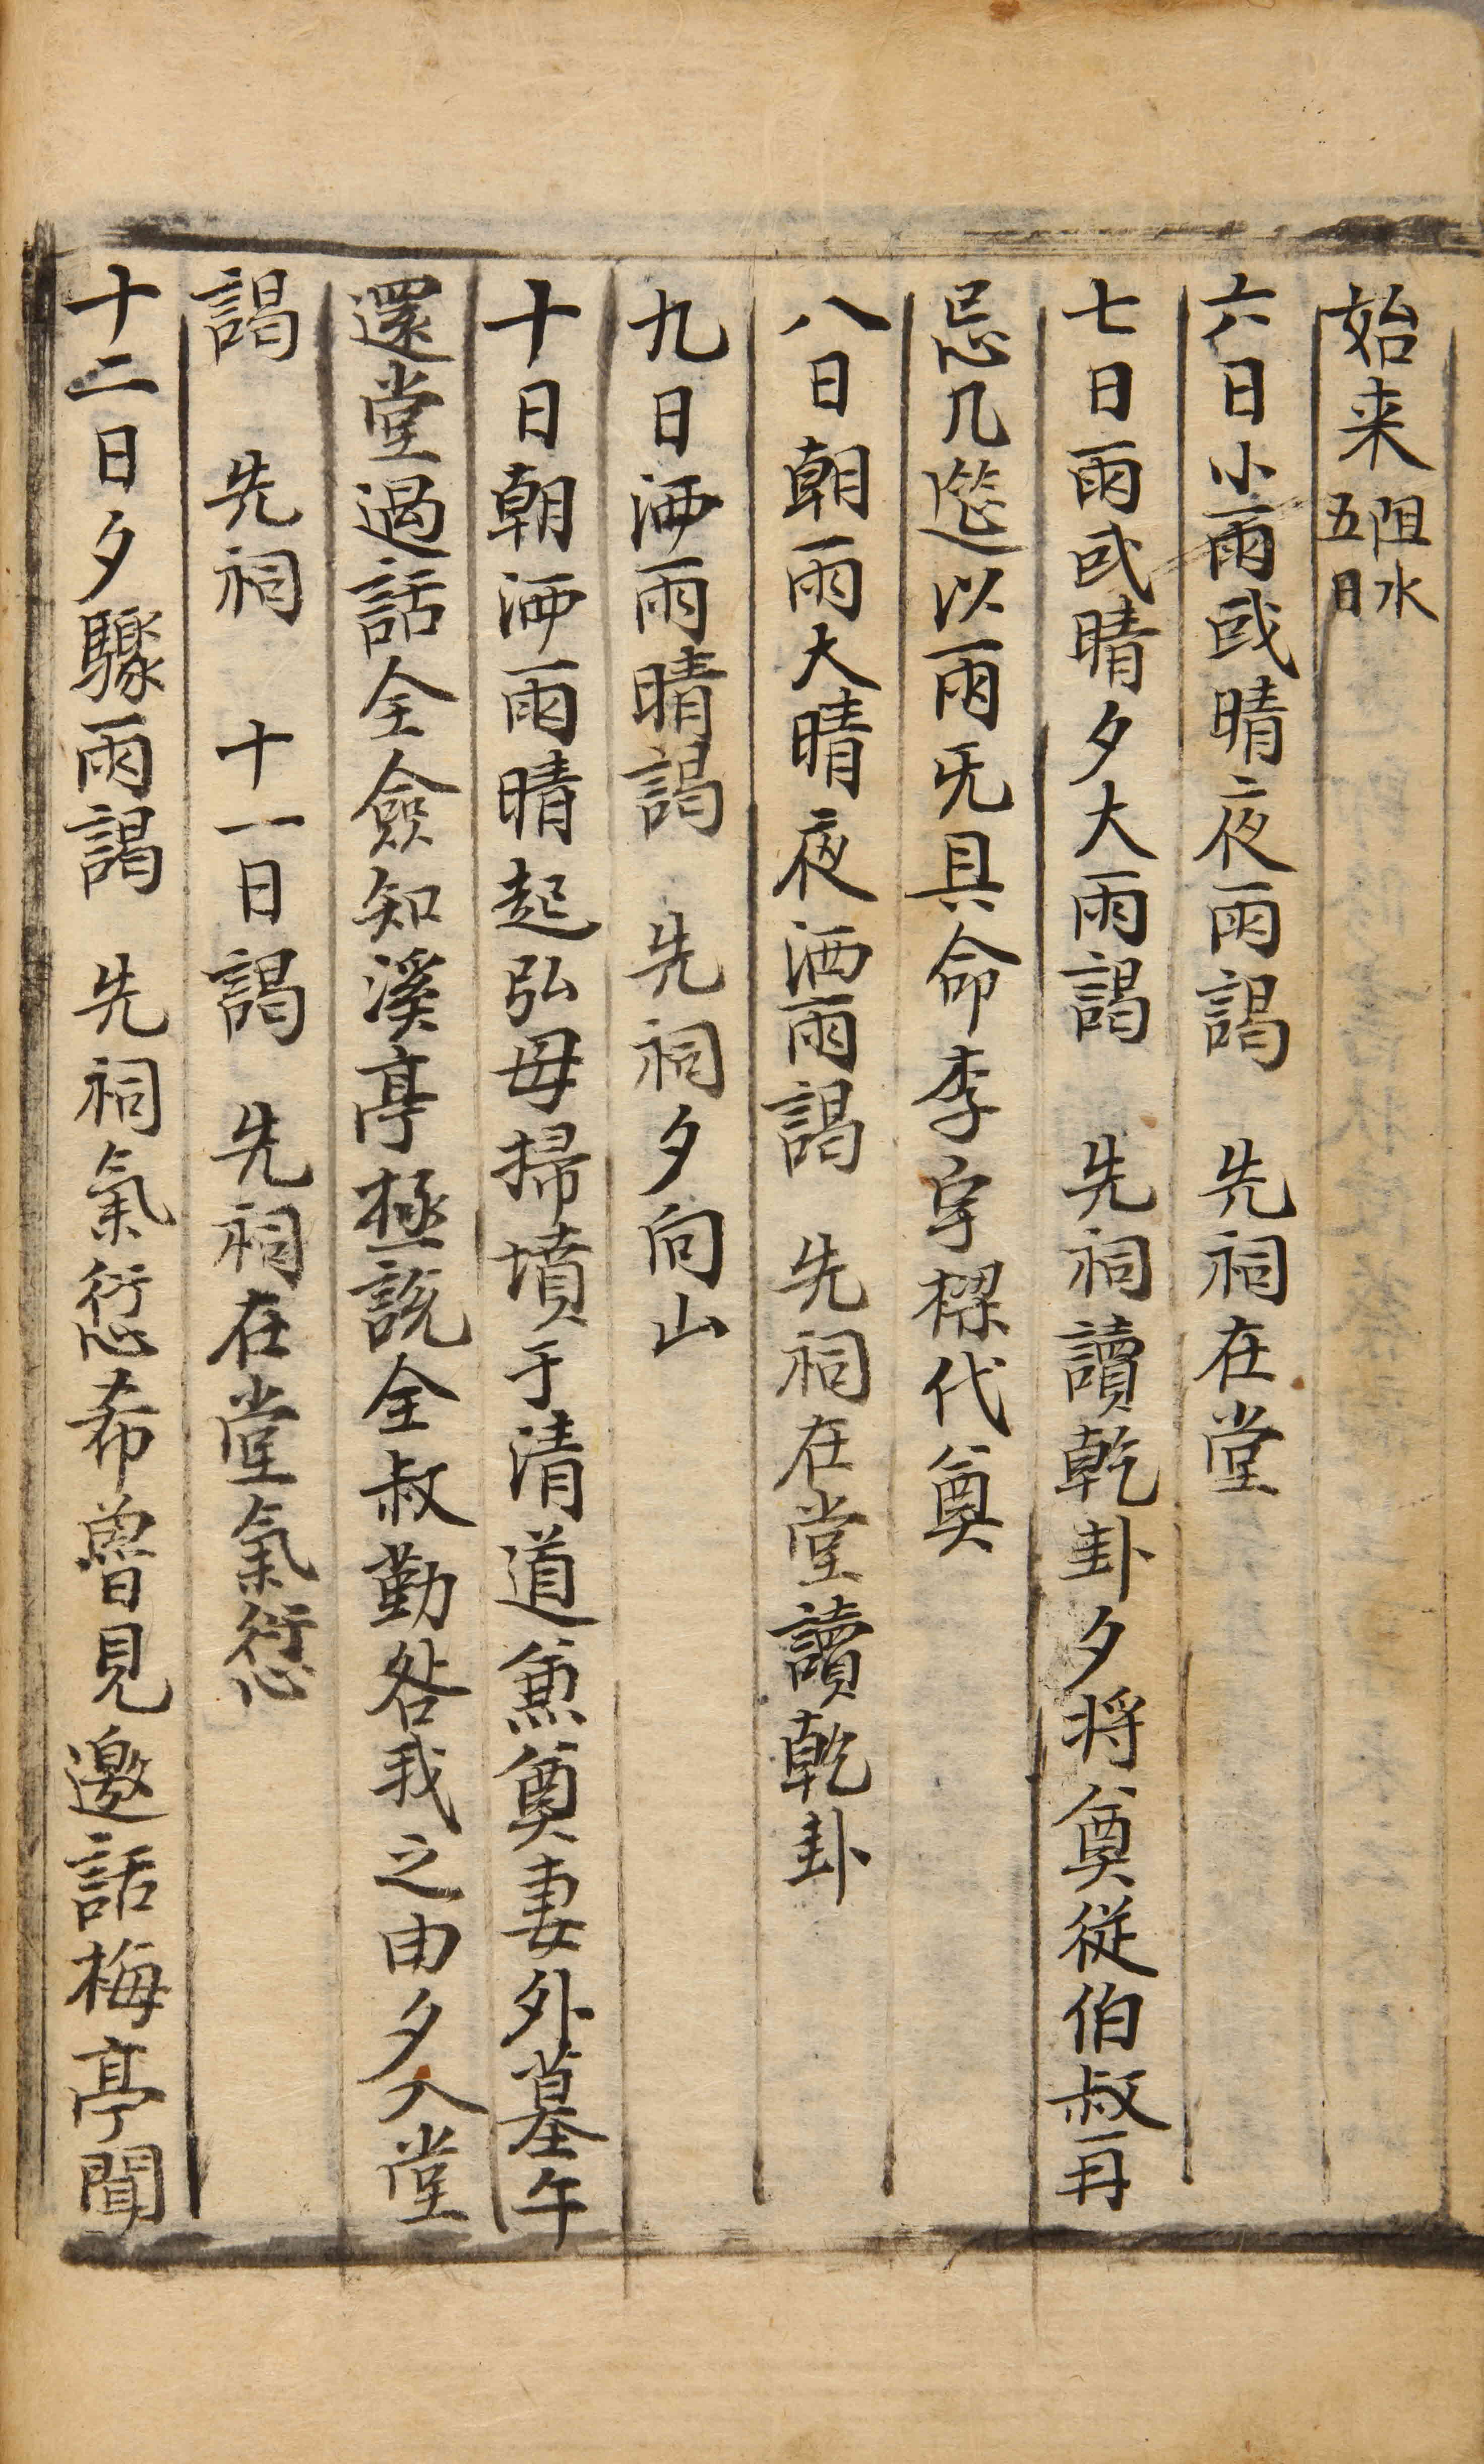 始来阻水五日
六日小雨或晴夜雨謁 先祠在堂
七日雨或晴夕大雨謁 先祠讀乾卦夕将奠従伯叔再
忌几筵以雨旡具命李字樑代奠
八日朝雨大晴夜洒雨謁 先祠在堂讀乾卦
九日洒雨晴謁 先祠夕向山
十日朝洒雨晴起弘母掃墳于清道兼奠妻外墓午
還堂過話全僉知溪亭極說全叔勤咎我之由夕入堂
謁 先祠 十一日謁 先祠在堂氣愆
十二日夕驟雨謁 先祠氣愆希魯見邀話梅亭聞